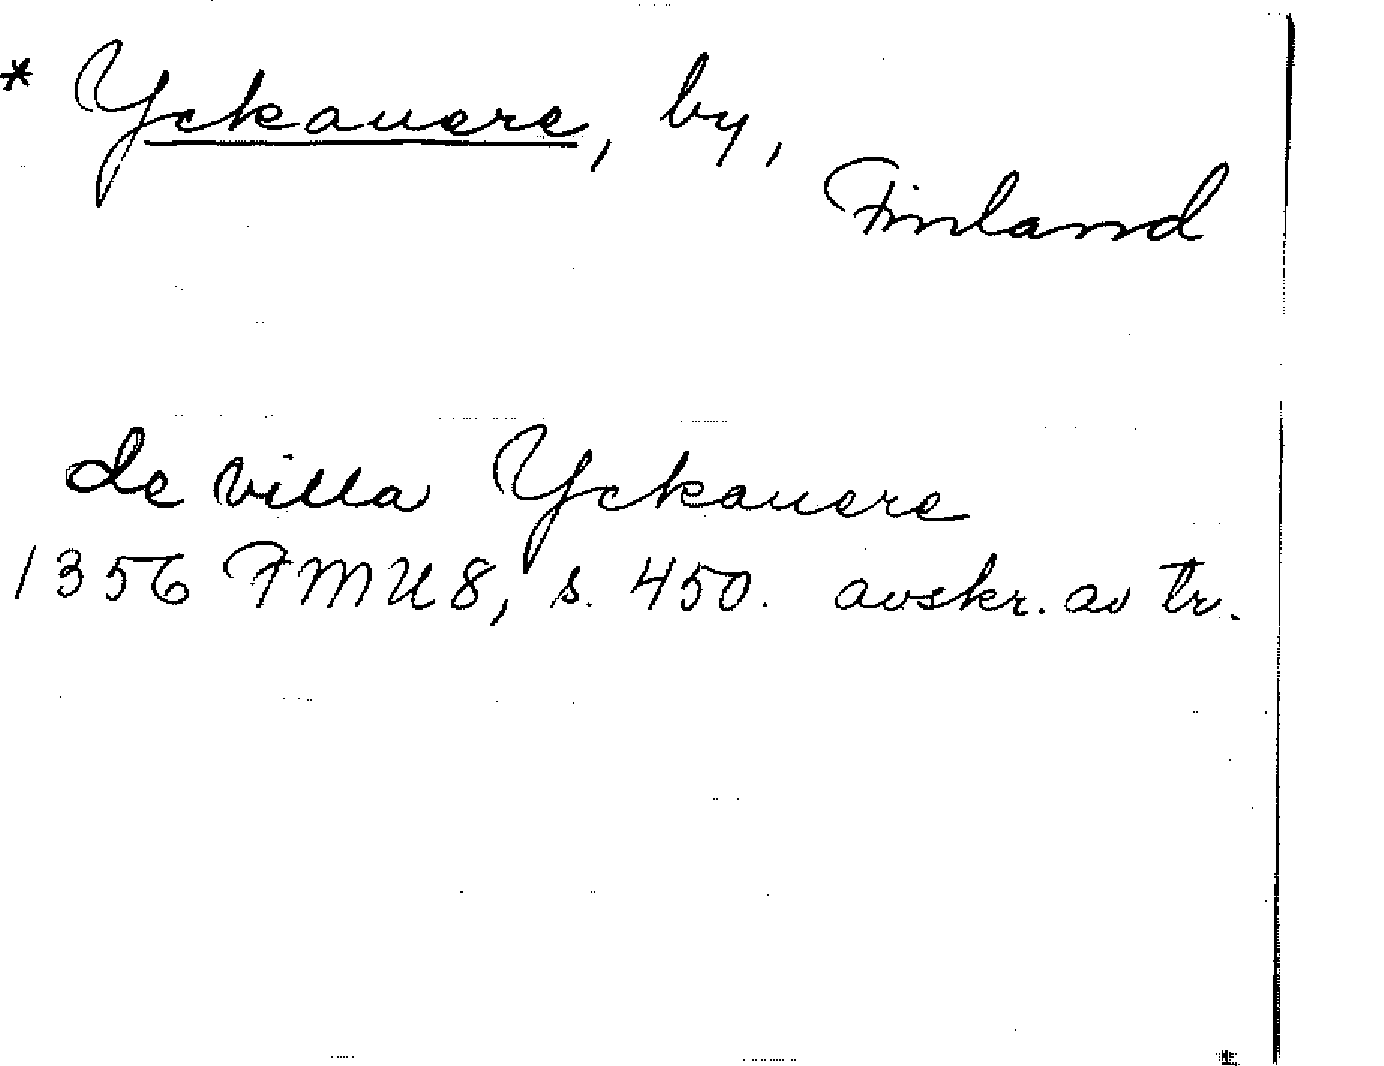 * Yckauere, by,
Finland
de villa Yckauere
1356 FMU 8, s. 450. avskr. av tr.